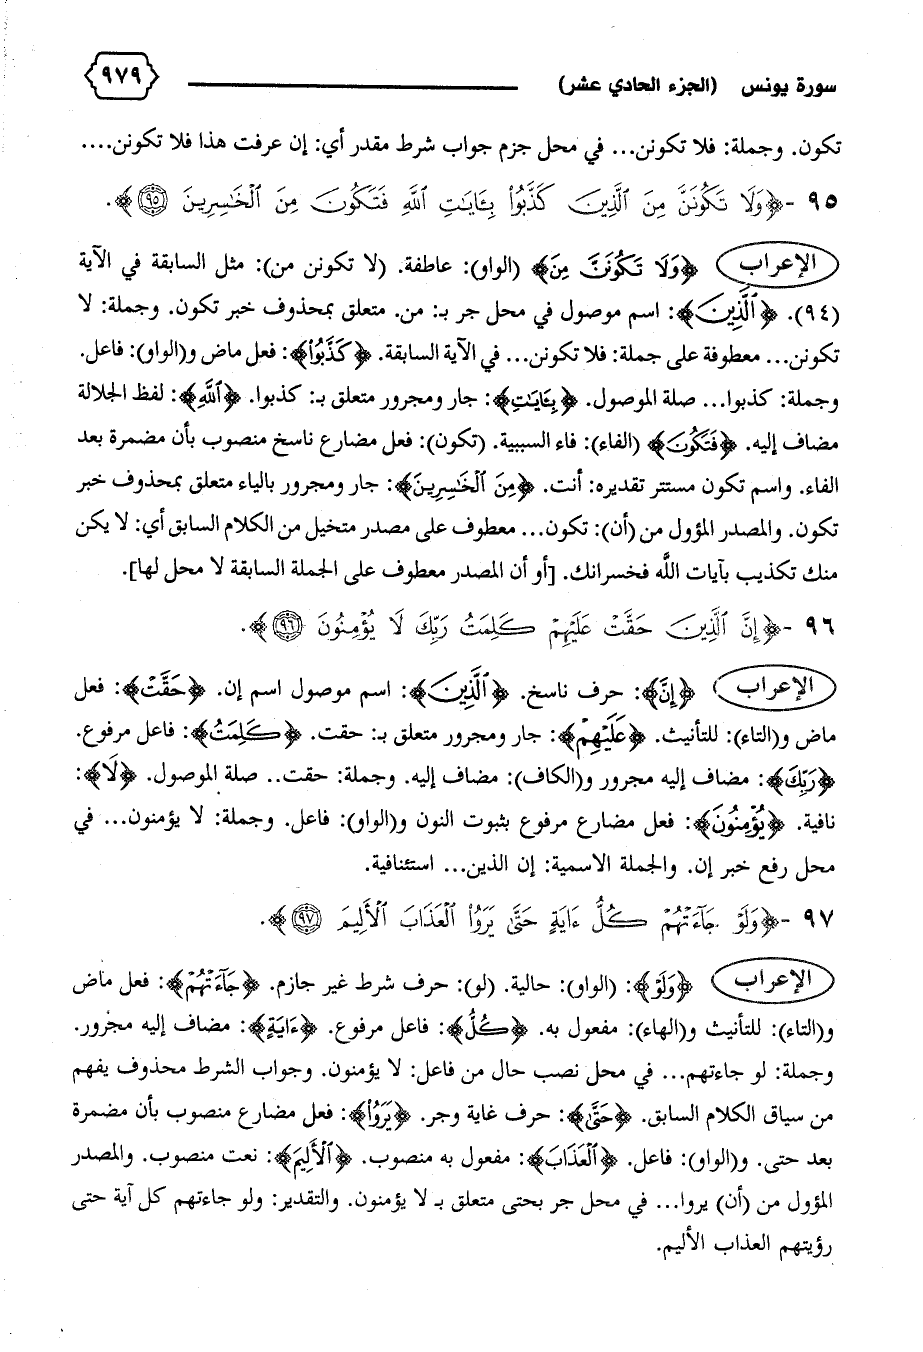 سورة يونس (الجزء الحادي عشر) ٩٧٩
تكون. وجملة: فلا تكونن... في محل جزم جواب شرط مقدر أي: إن عرفت هذا فلا تكونن....
٩٥ -﴿وَلَا تَكُونَنَّ مِنَ ٱلَّذِينَ كَذَّبُوا۟ بِـَٔايَـٰتِ ٱللَّهِ فَتَكُونَ مِنَ ٱلْخَـٰسِرِينَ ۝٩٥﴾.
الإعراب ﴿وَلَا تَكُونَنَّ مِنَ﴾ (الواو): عاطفة. (لا تكونن من): مثل السابقة في الآية
(٩٤). ﴿ٱلَّذِينَ﴾: اسم موصول في محل جر بـ: من. متعلق بمحذوف خبر تكون. وجملة: لا
تكونن... معطوفة على جملة: فلا تكونن... في الآية السابقة. ﴿كَذَّبُوا۟﴾: فعل ماض و(الواو): فاعل.
وجملة: كذبوا... صلة الموصول. ﴿بِـَٔايَـٰتِ﴾: جار ومجرور متعلق بـ: كذبوا. ﴿ٱللَّهِ﴾: لفظ الجلالة
مضاف إليه. ﴿فَتَكُونَ﴾ (الفاء): فاء السببية. (تكون): فعل مضارع ناسخ منصوب بأن مضمرة بعد
الفاء. واسم تكون مستتر تقديره: أنت. ﴿مِنَ ٱلْخَـٰسِرِينَ﴾: جار ومجرور بالياء متعلق بمحذوف خبر
تكون. والمصدر المؤول من (أن): تكون... معطوف على مصدر متخيل من الكلام السابق أي: لا يكن
منك تكذيب بآيات الله فخسرانك. [أو أن المصدر معطوف على الجملة السابقة لا محل لها].
٩٦ -﴿إِنَّ ٱلَّذِينَ حَقَّتْ عَلَيْهِمْ كَلِمَتُ رَبِّكَ لَا يُؤْمِنُونَ ۝٩٦﴾.
الإعراب ﴿إِنَّ﴾: حرف ناسخ. ﴿ٱلَّذِينَ﴾: اسم موصول اسم إن. ﴿حَقَّتْ﴾: فعل
ماض و(التاء): للتأنيث. ﴿عَلَيْهِمْ﴾: جار ومجرور متعلق بـ: حقت. ﴿كَلِمَتُ﴾: فاعل مرفوع.
﴿رَبِّكَ﴾: مضاف إليه مجرور و(الكاف): مضاف إليه. وجملة: حقت.. صلة الموصول. ﴿لَا﴾:
نافية. ﴿يُؤْمِنُونَ﴾: فعل مضارع مرفوع بثبوت النون و(الواو): فاعل. وجملة: لا يؤمنون... في
محل رفع خبر إن. والجملة الاسمية: إن الذين... استئنافية.
٩٧ -﴿وَلَوْ جَآءَتْهُمْ كُلُّ ءَايَةٍ حَتَّىٰ يَرَوُا۟ ٱلْعَذَابَ ٱلْأَلِيمَ ۝٩٧﴾.
الإعراب ﴿وَلَوْ﴾: (الواو): حالية. (لو): حرف شرط غير جازم. ﴿جَآءَتْهُمْ﴾: فعل ماض
و(التاء): للتأنيث و(الهاء): مفعول به. ﴿كُلُّ﴾: فاعل مرفوع. ﴿ءَايَةٍ﴾: مضاف إليه مجرور.
وجملة: لو جاءتهم... في محل نصب حال من فاعل: لا يؤمنون. وجواب الشرط محذوف يفهم
من سياق الكلام السابق. ﴿حَتَّىٰ﴾: حرف غاية وجر. ﴿يَرَوُا۟﴾: فعل مضارع منصوب بأن مضمرة
بعد حتى. و(الواو): فاعل. ﴿ٱلْعَذَابَ﴾: مفعول به منصوب. ﴿ٱلْأَلِيمَ﴾: نعت منصوب. والمصدر
المؤول من (أن) يروا... في محل جر بحتى متعلق بـ لا يؤمنون. والتقدير: ولو جاءتهم كل آية حتى
رؤيتهم العذاب الأليم.